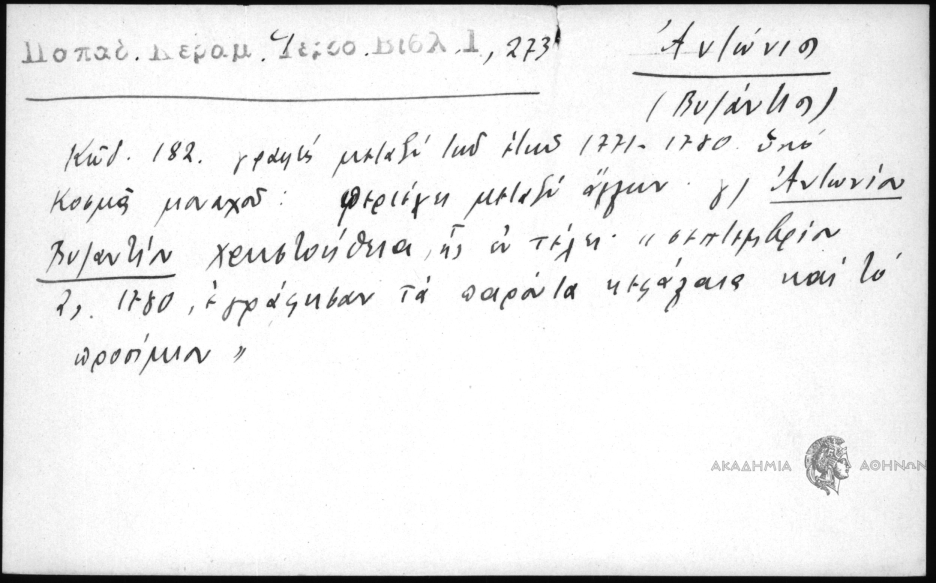 Παπαδ. Κεραμ. Ἱεροσ. Βιβλ. 1, 273
Ἀντώνιος
(Βυζάντιος)
Κῶδ. 182. γραφεὶς μεταξὺ τοῦ ἔτους 1771-1780 ὑπὸ
Κοσμᾶ μοναχοῦ: περιέχει μεταξὺ ἄλλων γ) Ἀντωνίου
Βυζαντίου χρηστοήθεια, ἧς ἐν τέλει "σεπτεμβρίου
1780, ἐγράφησαν τὰ παρόντα κεφάλαια καὶ τὸ
προοίμιον"
ΑΚΑΔΗΜΙΑ ΑΘΗΝΩΝ